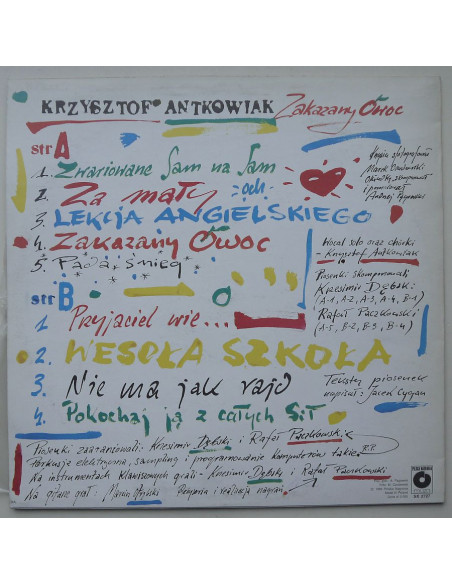 KRZYSZTOF ANTKOWIAK Zakazany Owoc
str A
1. Zwariowane Sam na Sam
2. Za mały och
3. LEKCJA ANGIELSKIEGO
4. Zakazany Owoc
5. Pada śnieg
str B
1 Przyjaciel wie...
2. WESOŁA SZKOŁA
3. Nie ma jak rajd
4. Pokochaj ją z całych Sił
Marek
i
Andrzej
Wocal solo oraz chórki
- Krzysztof Antkowiak
Piosenki skomponowali
Krzesimir Dębski
(A-1, A-2, A-3, A-4, B-1)
Rafał Paczkowski
(A-5, B-2, B-3, B-4)
Teksty piosenek
napisał: Jacek Cygan
Piosenki zaaranżowali: Krzesimir Dębski i Rafał Paczkowski
Perkusja elektroniczna, sampling i programowanie komputerów także R.P.
Na instrumentach klawiszowych grali - Krzesimir Dębski i Rafał Paczkowski
Na gitarze grał: Marcin i realizacja nagrań
POLSKIE NAGRANIA